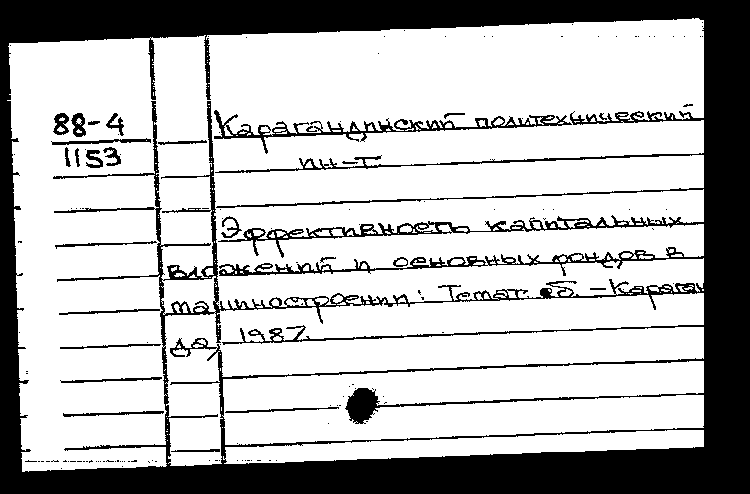 88-4
1153
Карагандинский политехнический
ин-т.
Эффективность капитальных
вложений и основных фондов в
машиностроении: Темат. сб. - Караган
да, 1987.